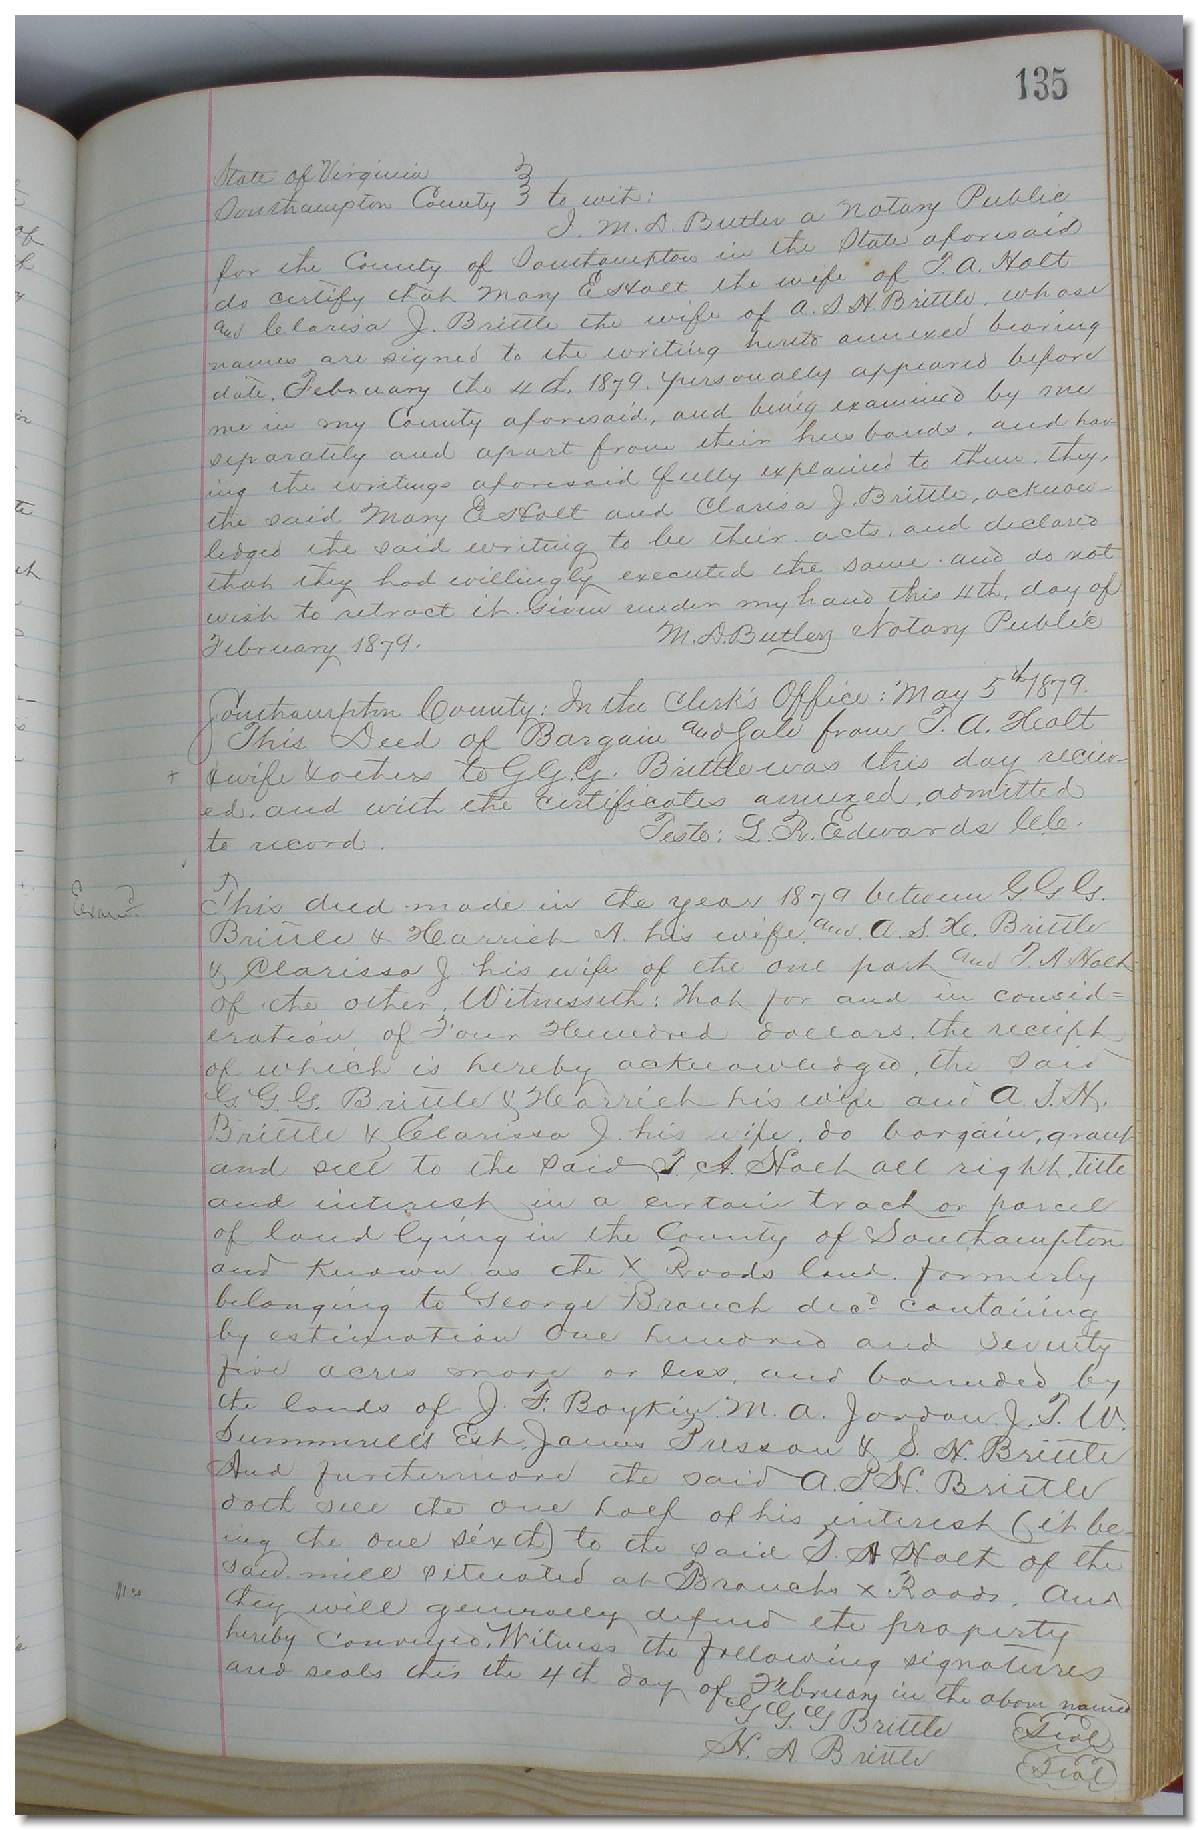 135
State of Virginia
Southampton County to wit:
I. M. D. Butler a Notary Public
for the County of Southampton in the State aforesaid
do certify that Mary E Holt the wife of T. A. Holt
and Clarisa J. Brittle the wife of A. S H. Brittle, whose
names are signed to the writing hereto annexed bearing
date, February the 4th, 1879, personally appeared before
me in my County aforesaid, and being examined by me
separately and apart from their husbands, and hav
ing the writings aforesaid fully explained to them, they,
the said Mary E Holt and Clarisa J. Brittle, acknow-
ledged the said writing to be their acts, and declared
that they had willingly executed the same and do not
wish to retract it. Given under my hand this 4th, day of
February 1879. M. D. Butler Notary Public
Southampton County: In the Clerk's Office: May 5th 1879.
This Deed of Bargain and Sale from T. A. Holt
& wife & others to G. G. G. Brittle was this day reciev-
ed, and with the certificates annexed, admitted
to record. Teste: L. R. Edwards C.C.
Examd.
This deed made in the year 1879 between G. G. G.
Brittle & Harriet A. his wife, and A. S. H. Brittle
& Clarissa J. his wife of the one part and T. A Holt
of the other, Witnesseth: that for and in consid=
eration of Four Hundred dollars, the receipt
of which is hereby acknowledged, the said
G. G. G. Brittle & Harriet his wife and A. S. H.
Brittle & Clarissa J. his wife, do bargain, grant
and sell to the said T. A. Holt all right, title
and interest in a certain tract or parcel
of land lying in the County of Southampton
and known as the X Roads land, formerly
belonging to George Branch decd. containing
by estimation One hundred and seventy
five acres more or less, and bounded by
the lands of J. F. Boykin, M. A. Jordan, J. T. W.
Summrell's Est, James Pusson & S. H. Brittle
And furthermore the said A. S. H. Brittle
doth sell the one half of his interest (it be-
ing the one sixth) to the said T. A Holt of the
saw mill situated at Branchs X Roads. And
they will generally defend the property
hereby conveyed. Witness the following signatures
and seals this the 4th day of February in the above named
G. G. G Brittle Seal
H. A Brittle Seal